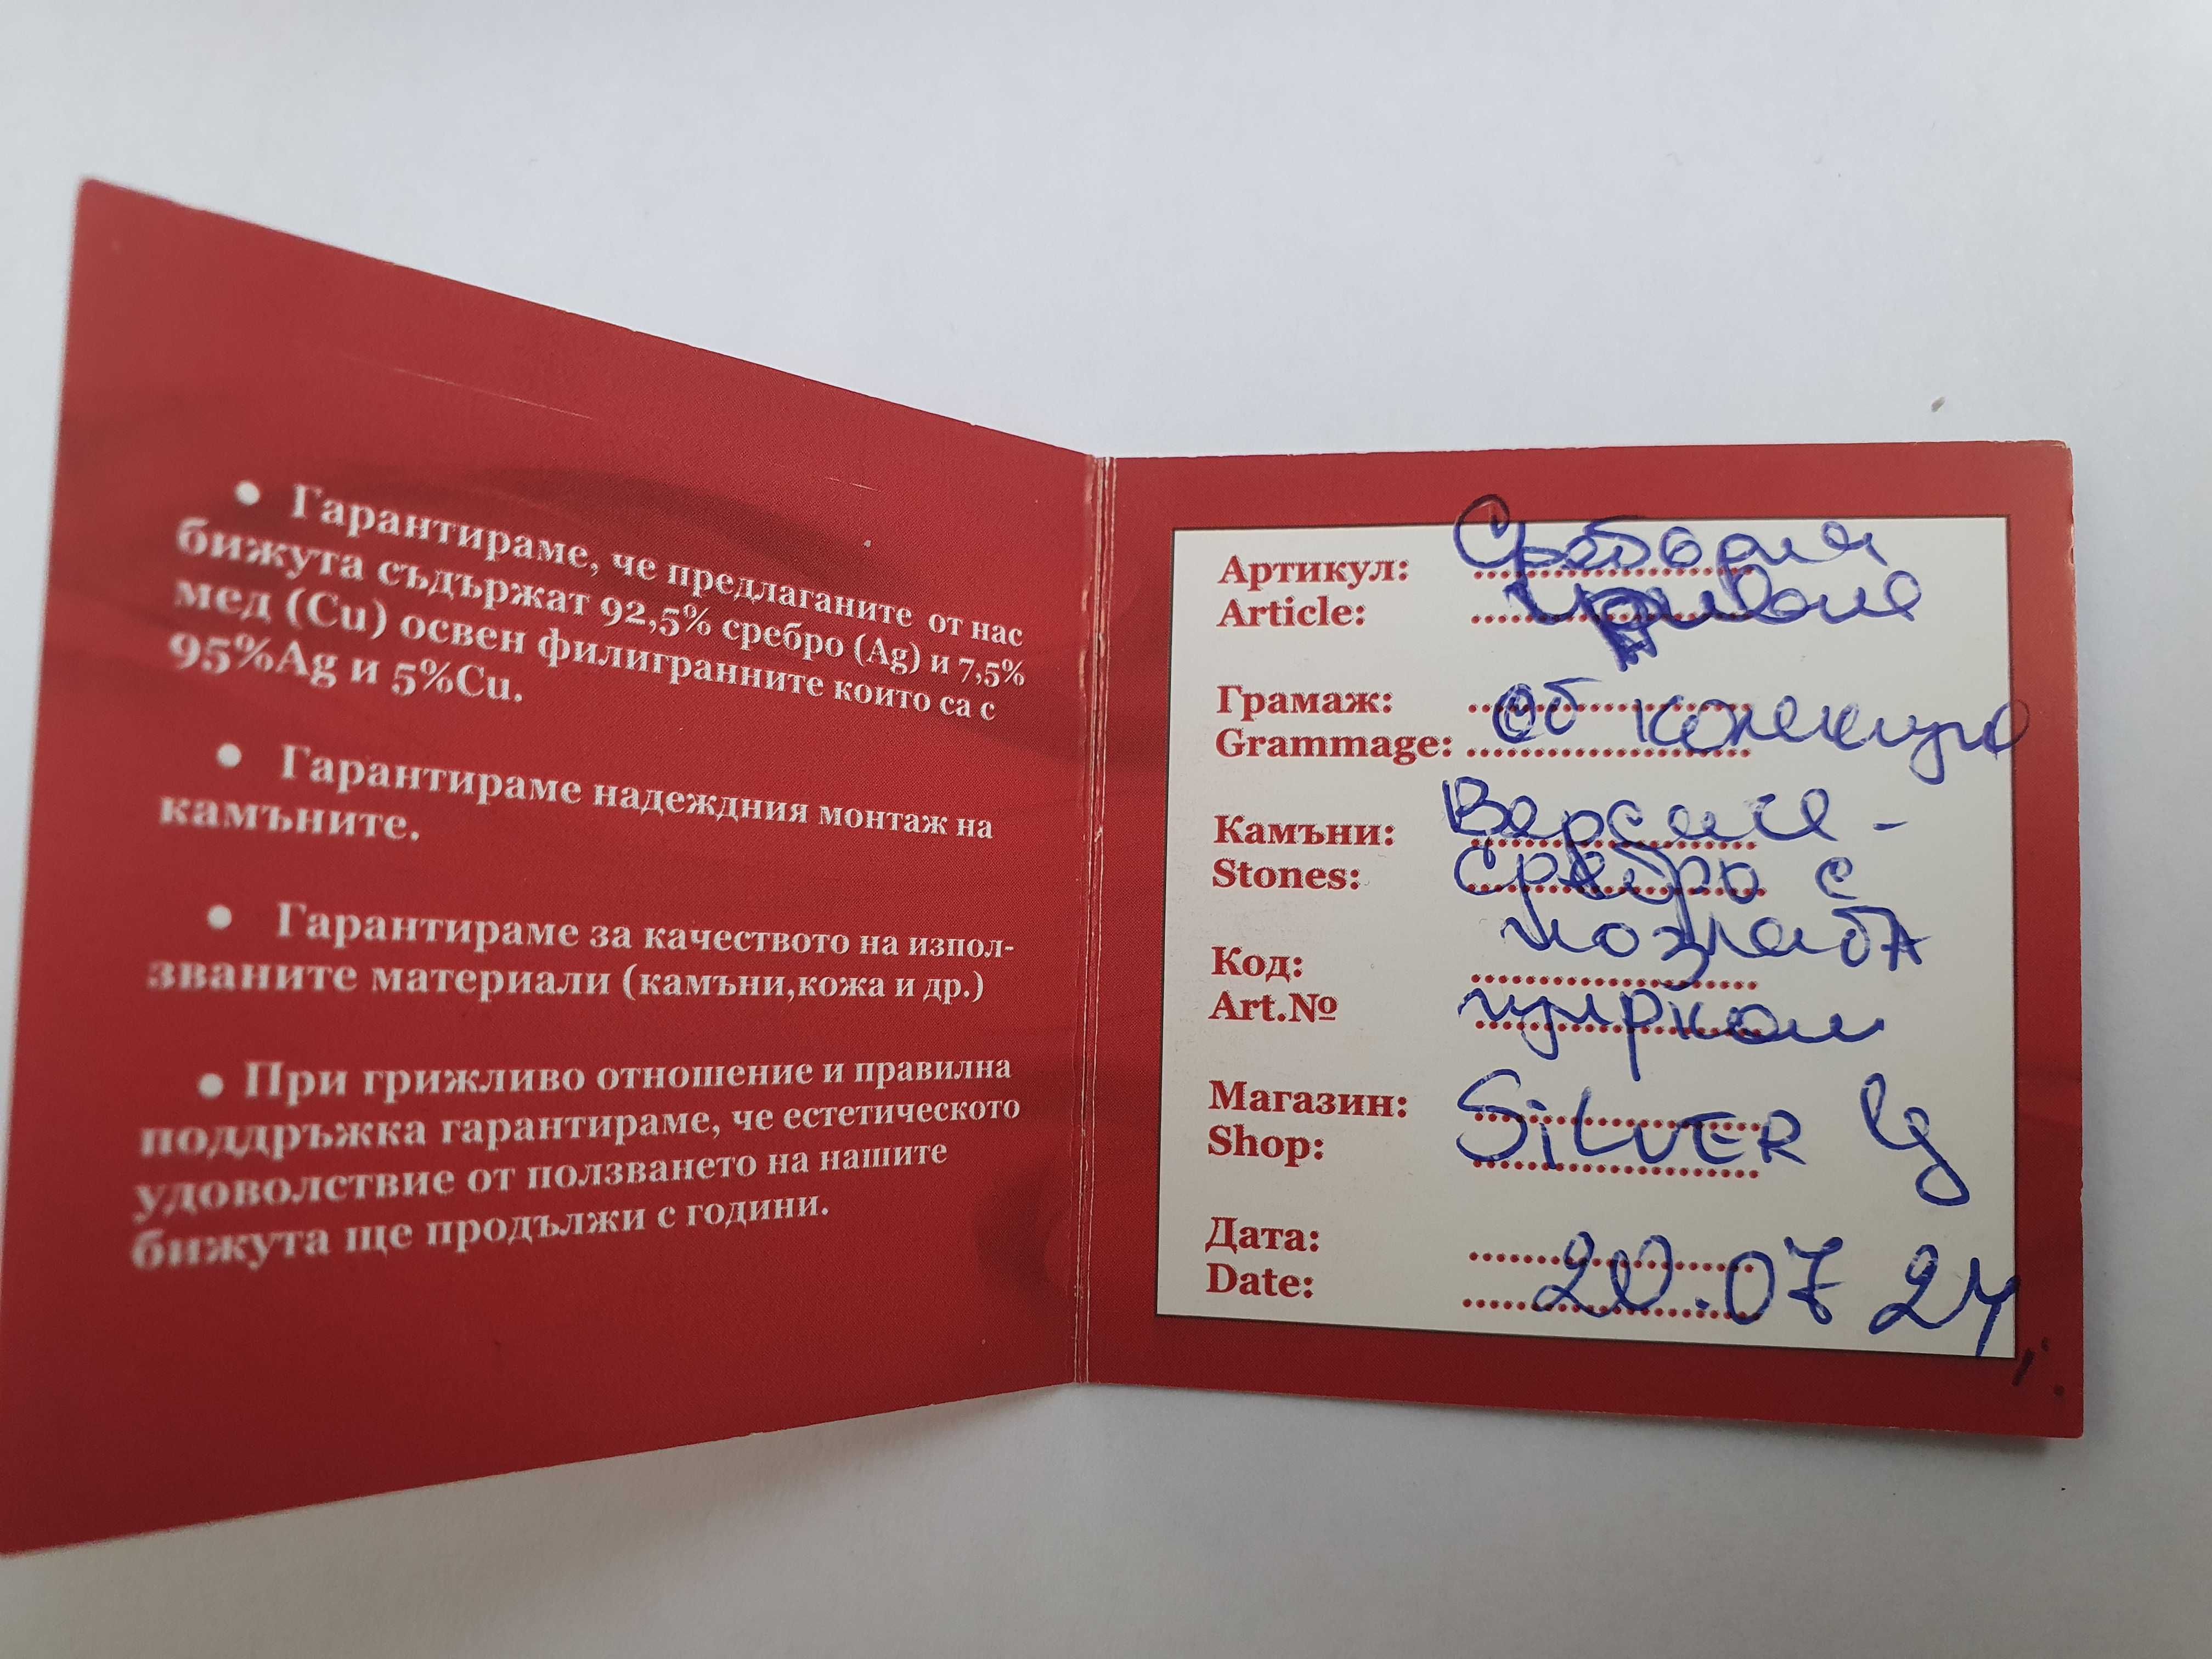 • Гарантираме, че предлаганите от нас
бижута съдържат 92,5% сребро (Ag) и 7,5%
мед (Cu) освен филигранните които са с
95%Ag и 5%Cu.
• Гарантираме надеждния монтаж на
камъните.
• Гарантираме за качеството на изпол-
званите материали (камъни,кожа и др.)
• При грижливо отношение и правилна
поддръжка гарантираме, че естетическото
удоволствие от ползването на нашите
бижута ще продължи с години.
Артикул:
Article:
Грамаж: От
Grammage:
Камъни:
Stones: сребро с
позлата
Код:
Art.№ циркон
Магазин:
Shop: SiLVER
Дата:
Date: 20.07 24